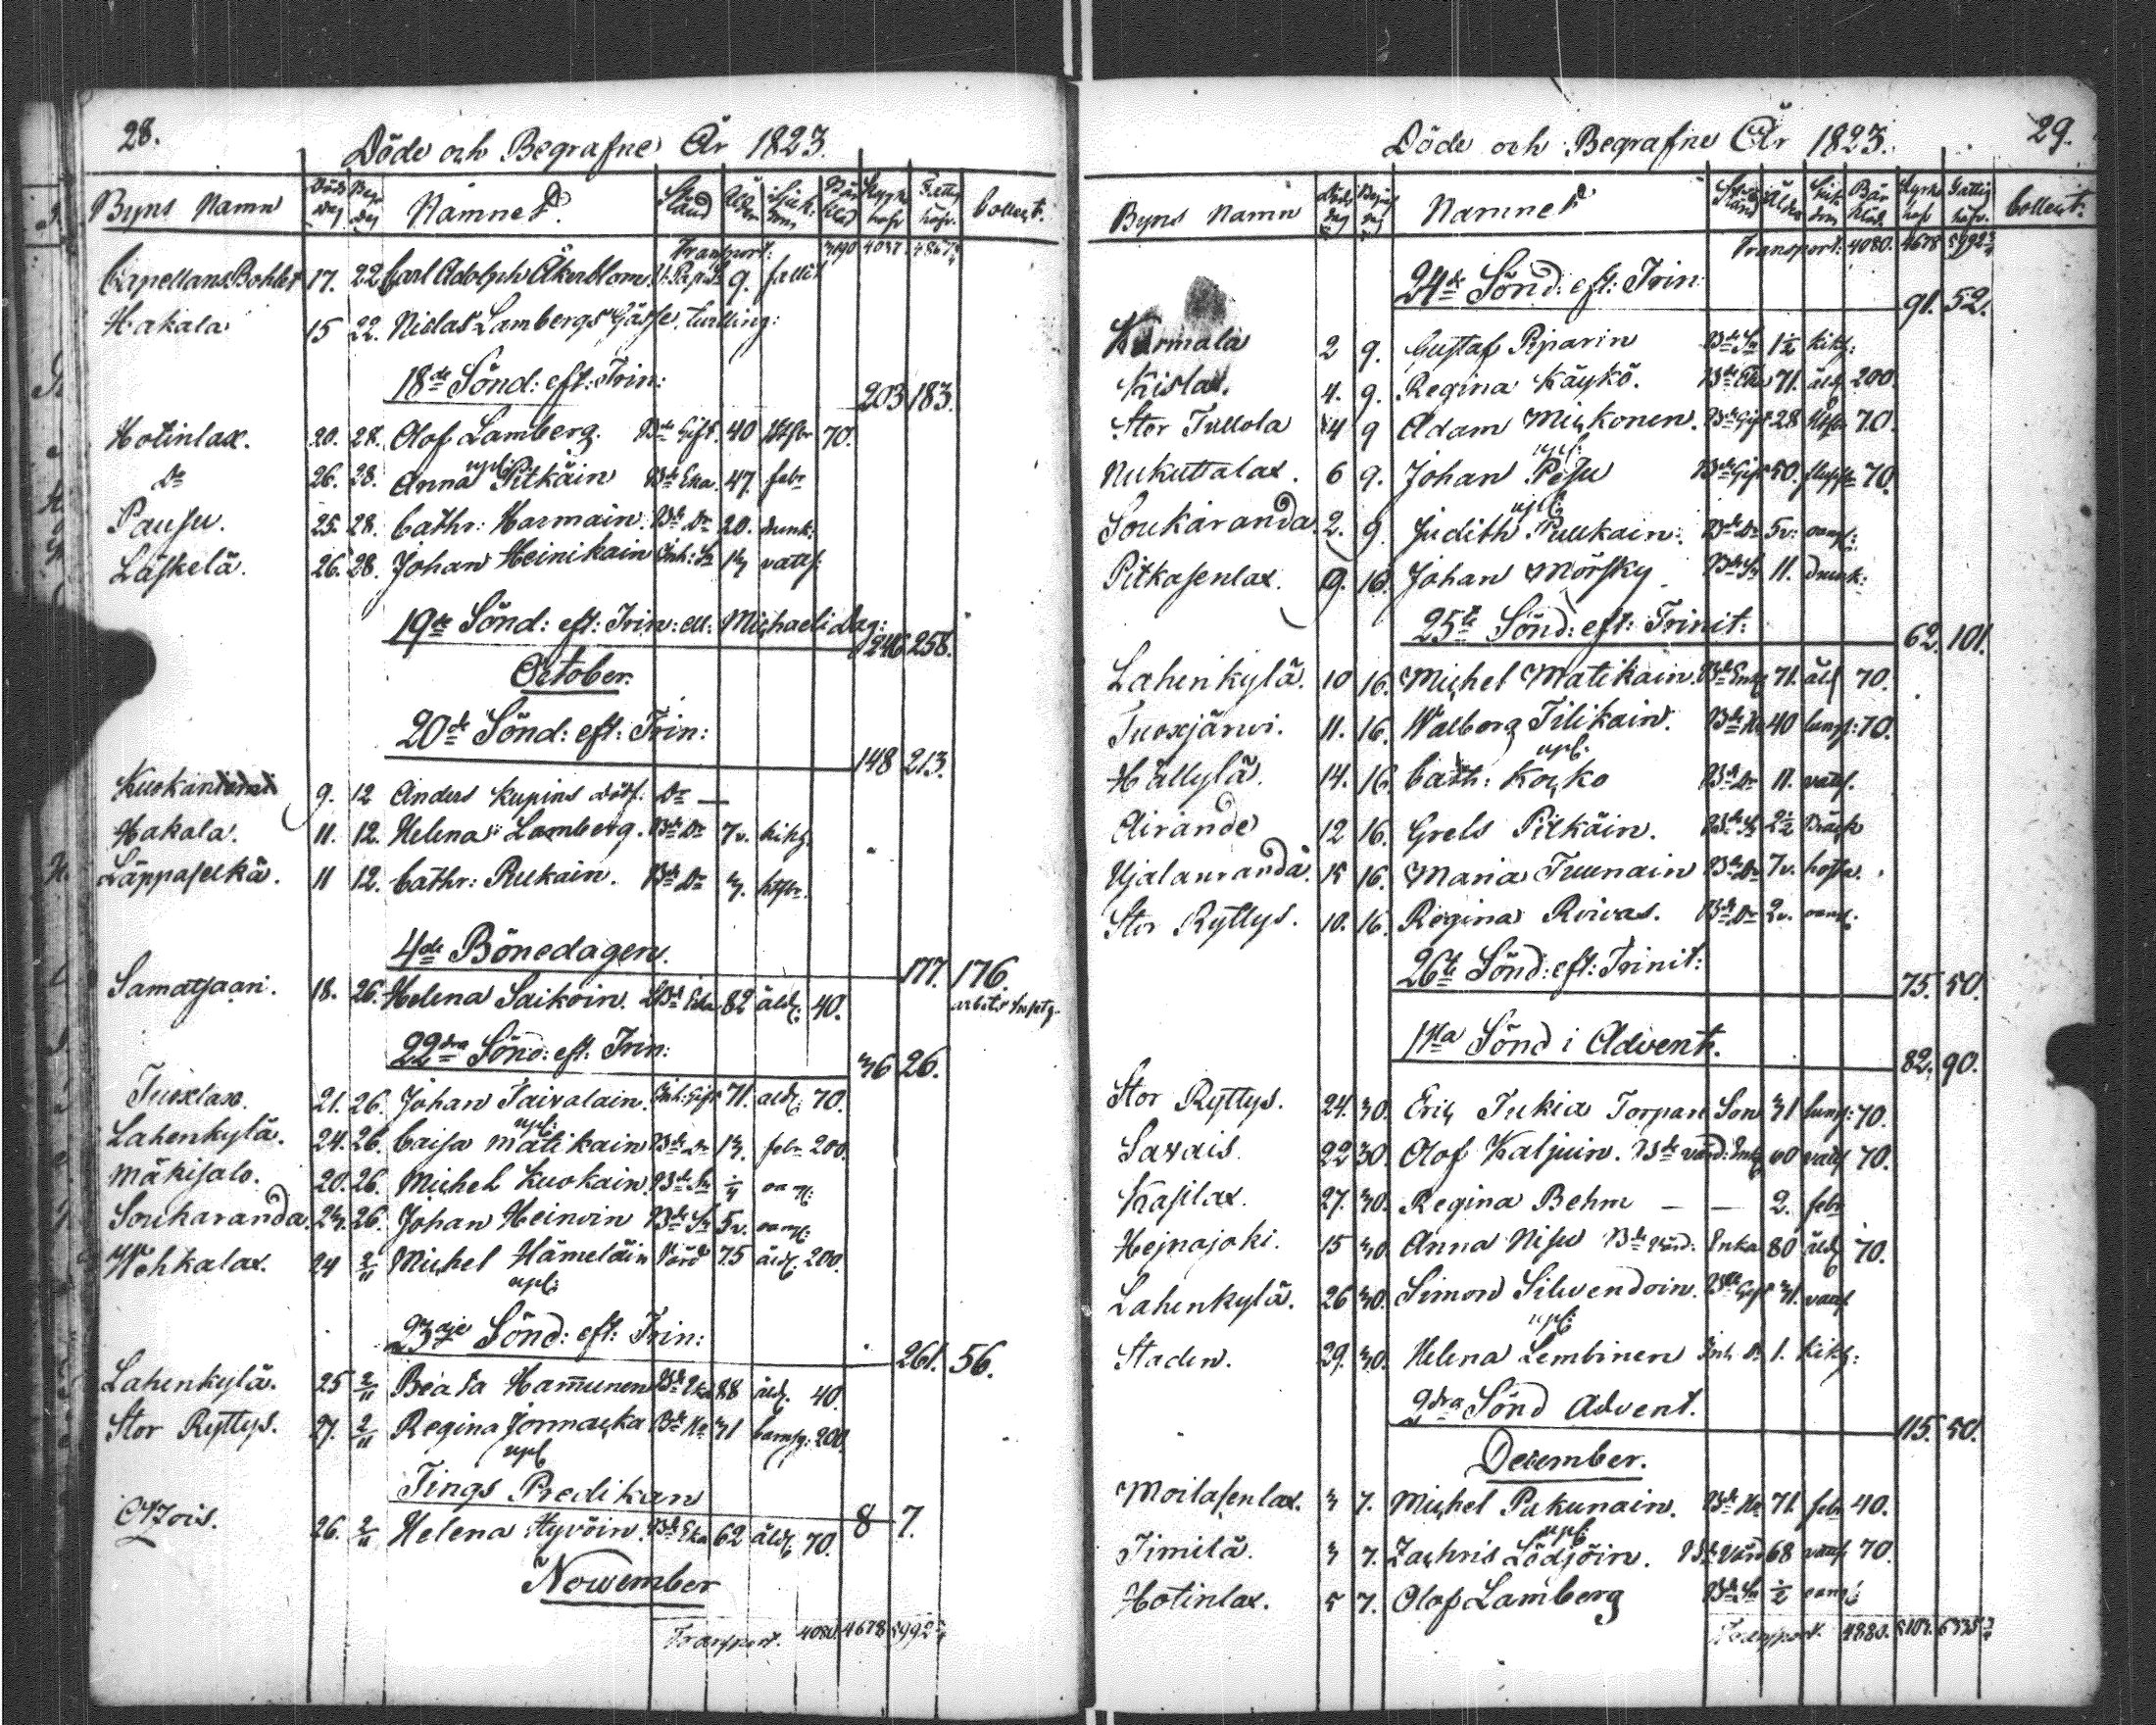 28.
Döde och Begrafne År 1823.
Byns Namn Döds Dag Begr Dag Namnet Stånd Ålder Siukdom Bår kläd Kyrko håfv Fattig håfv. Collect.
Transport: 3190 4037.
Capellans Bohlet 17. 22 Carl Adolph Åkerblom 9. fallit
Hakala 15 22. Niclas Lambergs Gåsse, twilling:
18de Sönd: eft: Trin:
203 183.
Hotinlax. 20. 28. Olof Lamberg. Bde Gift. 40 70.
Do 26. 28. Anna Pitkäin Bde Eka. 47. febr
Pausu. 25. 28. Cathr: Harmain. Bde Dr 20. drunk:
Läskelä. 26. 28. Johan Heinikain Inh: Sn vattf:
19de Sönd: eft: Trin: ell: Michaeli dag:
246 258.
October.
20de Sönd: eft: Trin:
148 213.
9. 12 Anders Kupins dödf. Dr —
Hakala. 11. 12. Helena Lamberg. Bde Dr 7v. kikh.
Läppäselkä. 11 12. Cathr: Rukain. Bde Dr
4de Bönedagen.
177. 176.
Samatsaari. 18. 26. Helena Saikoin. Eka 82 åld: 40.
22dra Sönd: eft: Trin:
36 26.
Tuoxlax. 21. 26. Johan Taivalain. Inh: Gift 71. åld: 70.
Lahenkylä. 24. 26. Caisa Matikain Bde Dr 13. febr 200.
upl:
Mäkisalo. 20. 26. Michel Kuokain. Bde Sn
Soukaranda. 23. 26. Johan Heinoin Bde Sn 5v.
Wehkalax. 24 2/11 Michel Hämeläin Värd 75 åld: 200.
upl:
23dje Sönd: eft: Trin:
261. 56.
Lahenkylä. 25 2/11 Beata Hamunen Bde Eka 88 åld: 40.
Stor Ryttys. 27. 2/11 Regina Jormacka Bde Hu 31 barnsg: 200.
upl
Tings Predikan
8 7.
Otzois. 26. 2/11 Helena Hyvöin. Bde Eka 62 åld: 70.
November
Transport. 4080. 4678 5992
29.
Döde och Begrafne År 1823.
Byns Namn Döds dag Begraf dag Namnet Stånd Ålder Siuk dom Bår kläd. Kyrko håf Fattig håfv. Collect.
Transport: 4080. 4678 5992
24de Sönd: eft: Trin:
91. 52.
Kurmala 2 9. Gustaf Piparin Bde Sn 1½ kikh:
Kislax. 4. 9. Regina Käykö. Bde Eka 71. åld 200.
Stor Tullola 4 9 Adam Mickonen. Bde Gift 28 70.
Nukuttalax. 6 9. Johan Pesu Bde Gift 50. 70.
upl:
Soukaranda. 2. 9. Judith Pullkain: Bde Dr 5v:
upl:
Pitkasenlax. 9. 16. Johan Mörsky Bde Sn 11. drunk:
25te Sönd: eft: Trinit:
62. 101.
Lahenkylä. 10 16. Michel Matikain. Bde Enkl 71. åld 70.
Tuoxjärwi. 11. 16. Walborg Tilikain. Bde Hu 40 lungs: 70.
Hällylä. 14. 16. Cath: Kocko Bde Dr 11. vattf.
upl:
Airande 12 16. Grels Pitkäin. Bde Sn 2½ Bråck
Ujalanranda. 15 16. Maria Tuunain Bde Dr 7v. hosta.
Stor Ryttys. 10. 16. Regina Roivas. Bde Dr 2v.
26te Sönd: eft: Trinit:
75. 50.
1sta Sönd i Advent.
82. 90.
Stor Ryttys. 24. 30. Eric Tukia Torpare Son 31 lungs: 70.
Saxais. 22 30. Olof Kaljuin. Bde värd: Enkl 60 vattf 70.
Kasilax. 27. 30. Regina Behm — — 2. febr
Hejnajoki. 15 30. Anna Nisu Bde värd: Enka 80 åld 70.
Lahenkylä. 26 30. Simon Silvendoin. Bde Gift 31. vattf
Staden. 29. 30. Helena Lembinen Inh. Dr 1. kikh:
upl:
2dra Sönd Advent.
115. 50.
December.
Moilasenlax. 3 7. Michel Pukunain. Bde 71. febr 40.
Timilä. 3 7. Zachris Lödjöin. Bde Värd 68 vattf 70.
upl:
Hotinlax. 5 7. Olof Lamberg Bde Sn ½
Transport. 4880.